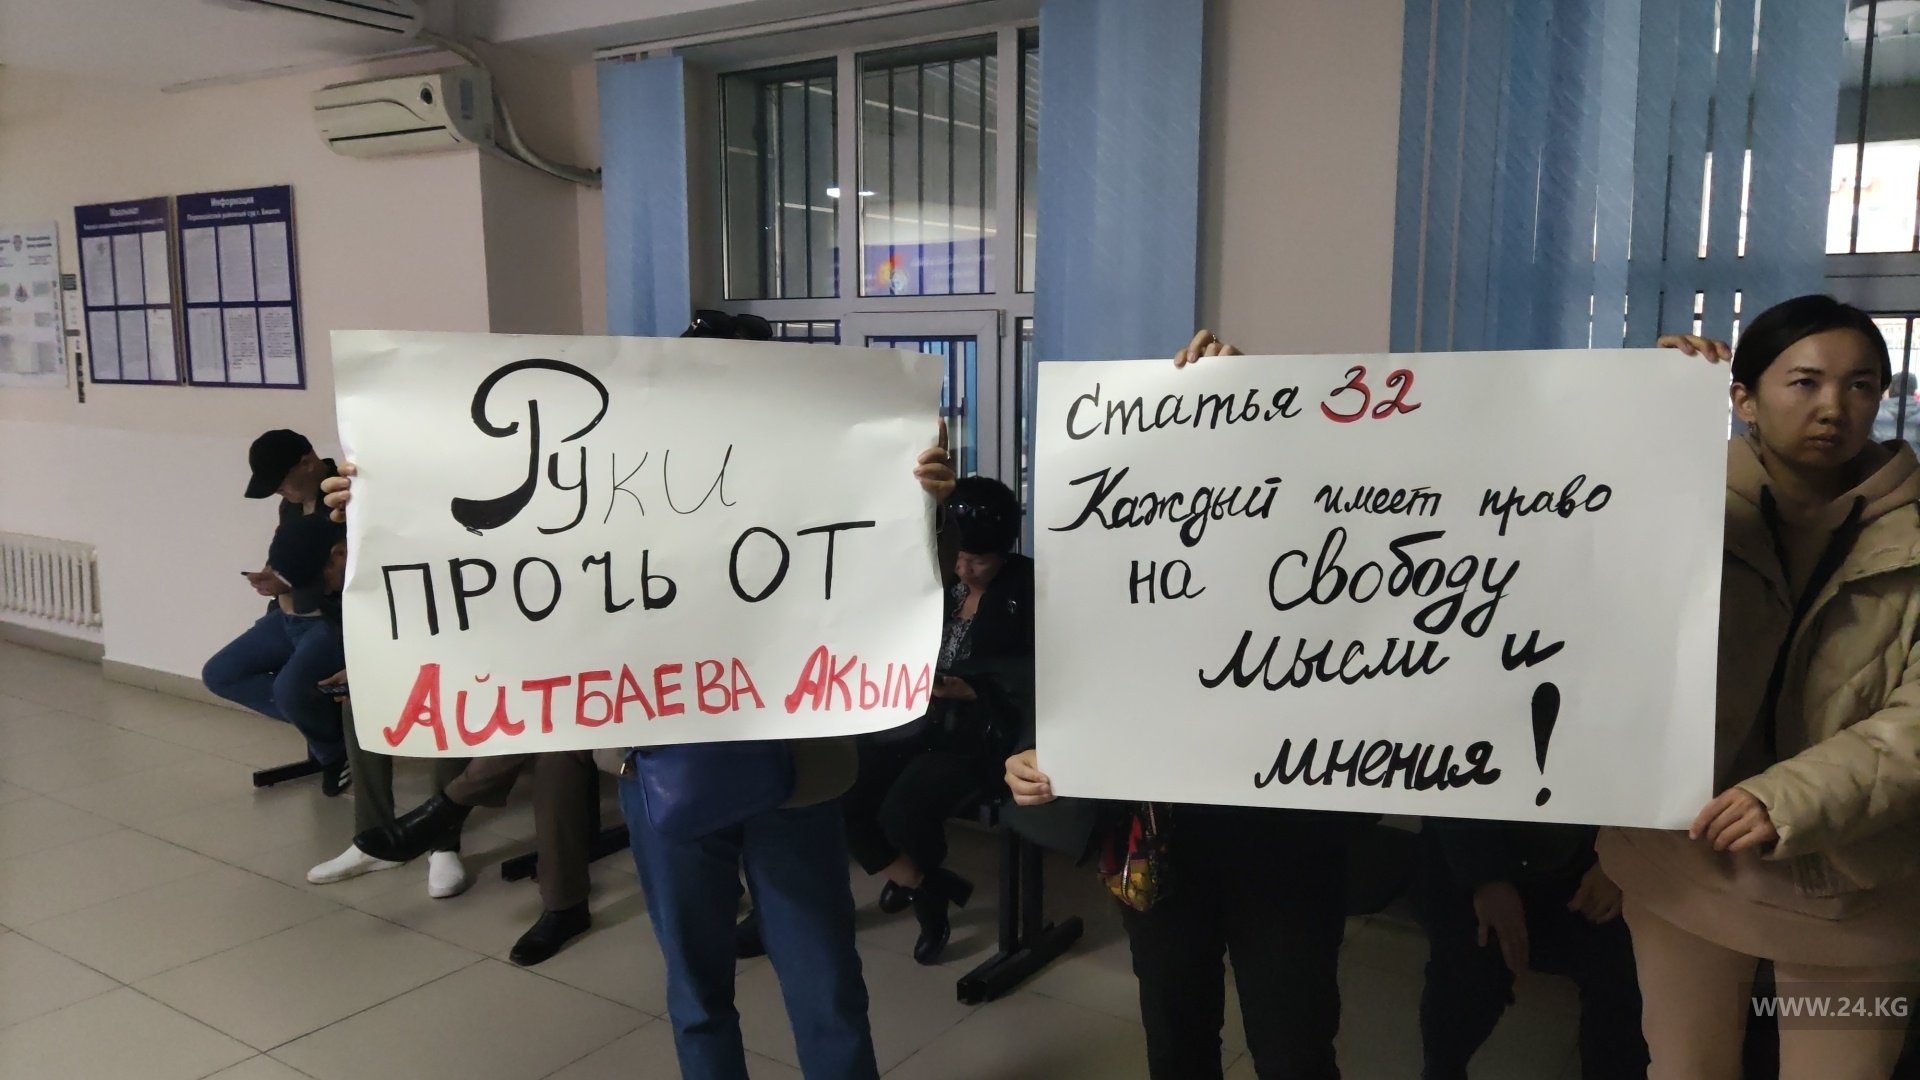 Маалымат
Информация
Первомайский районный суд г. Бишкек
Руки
ПРОЧЬ ОТ
АЙТБАЕВА АКЫЛА
Статья 32
Каждый имеет право
на свободу
мысли и
мнения!
WWW.24.KG